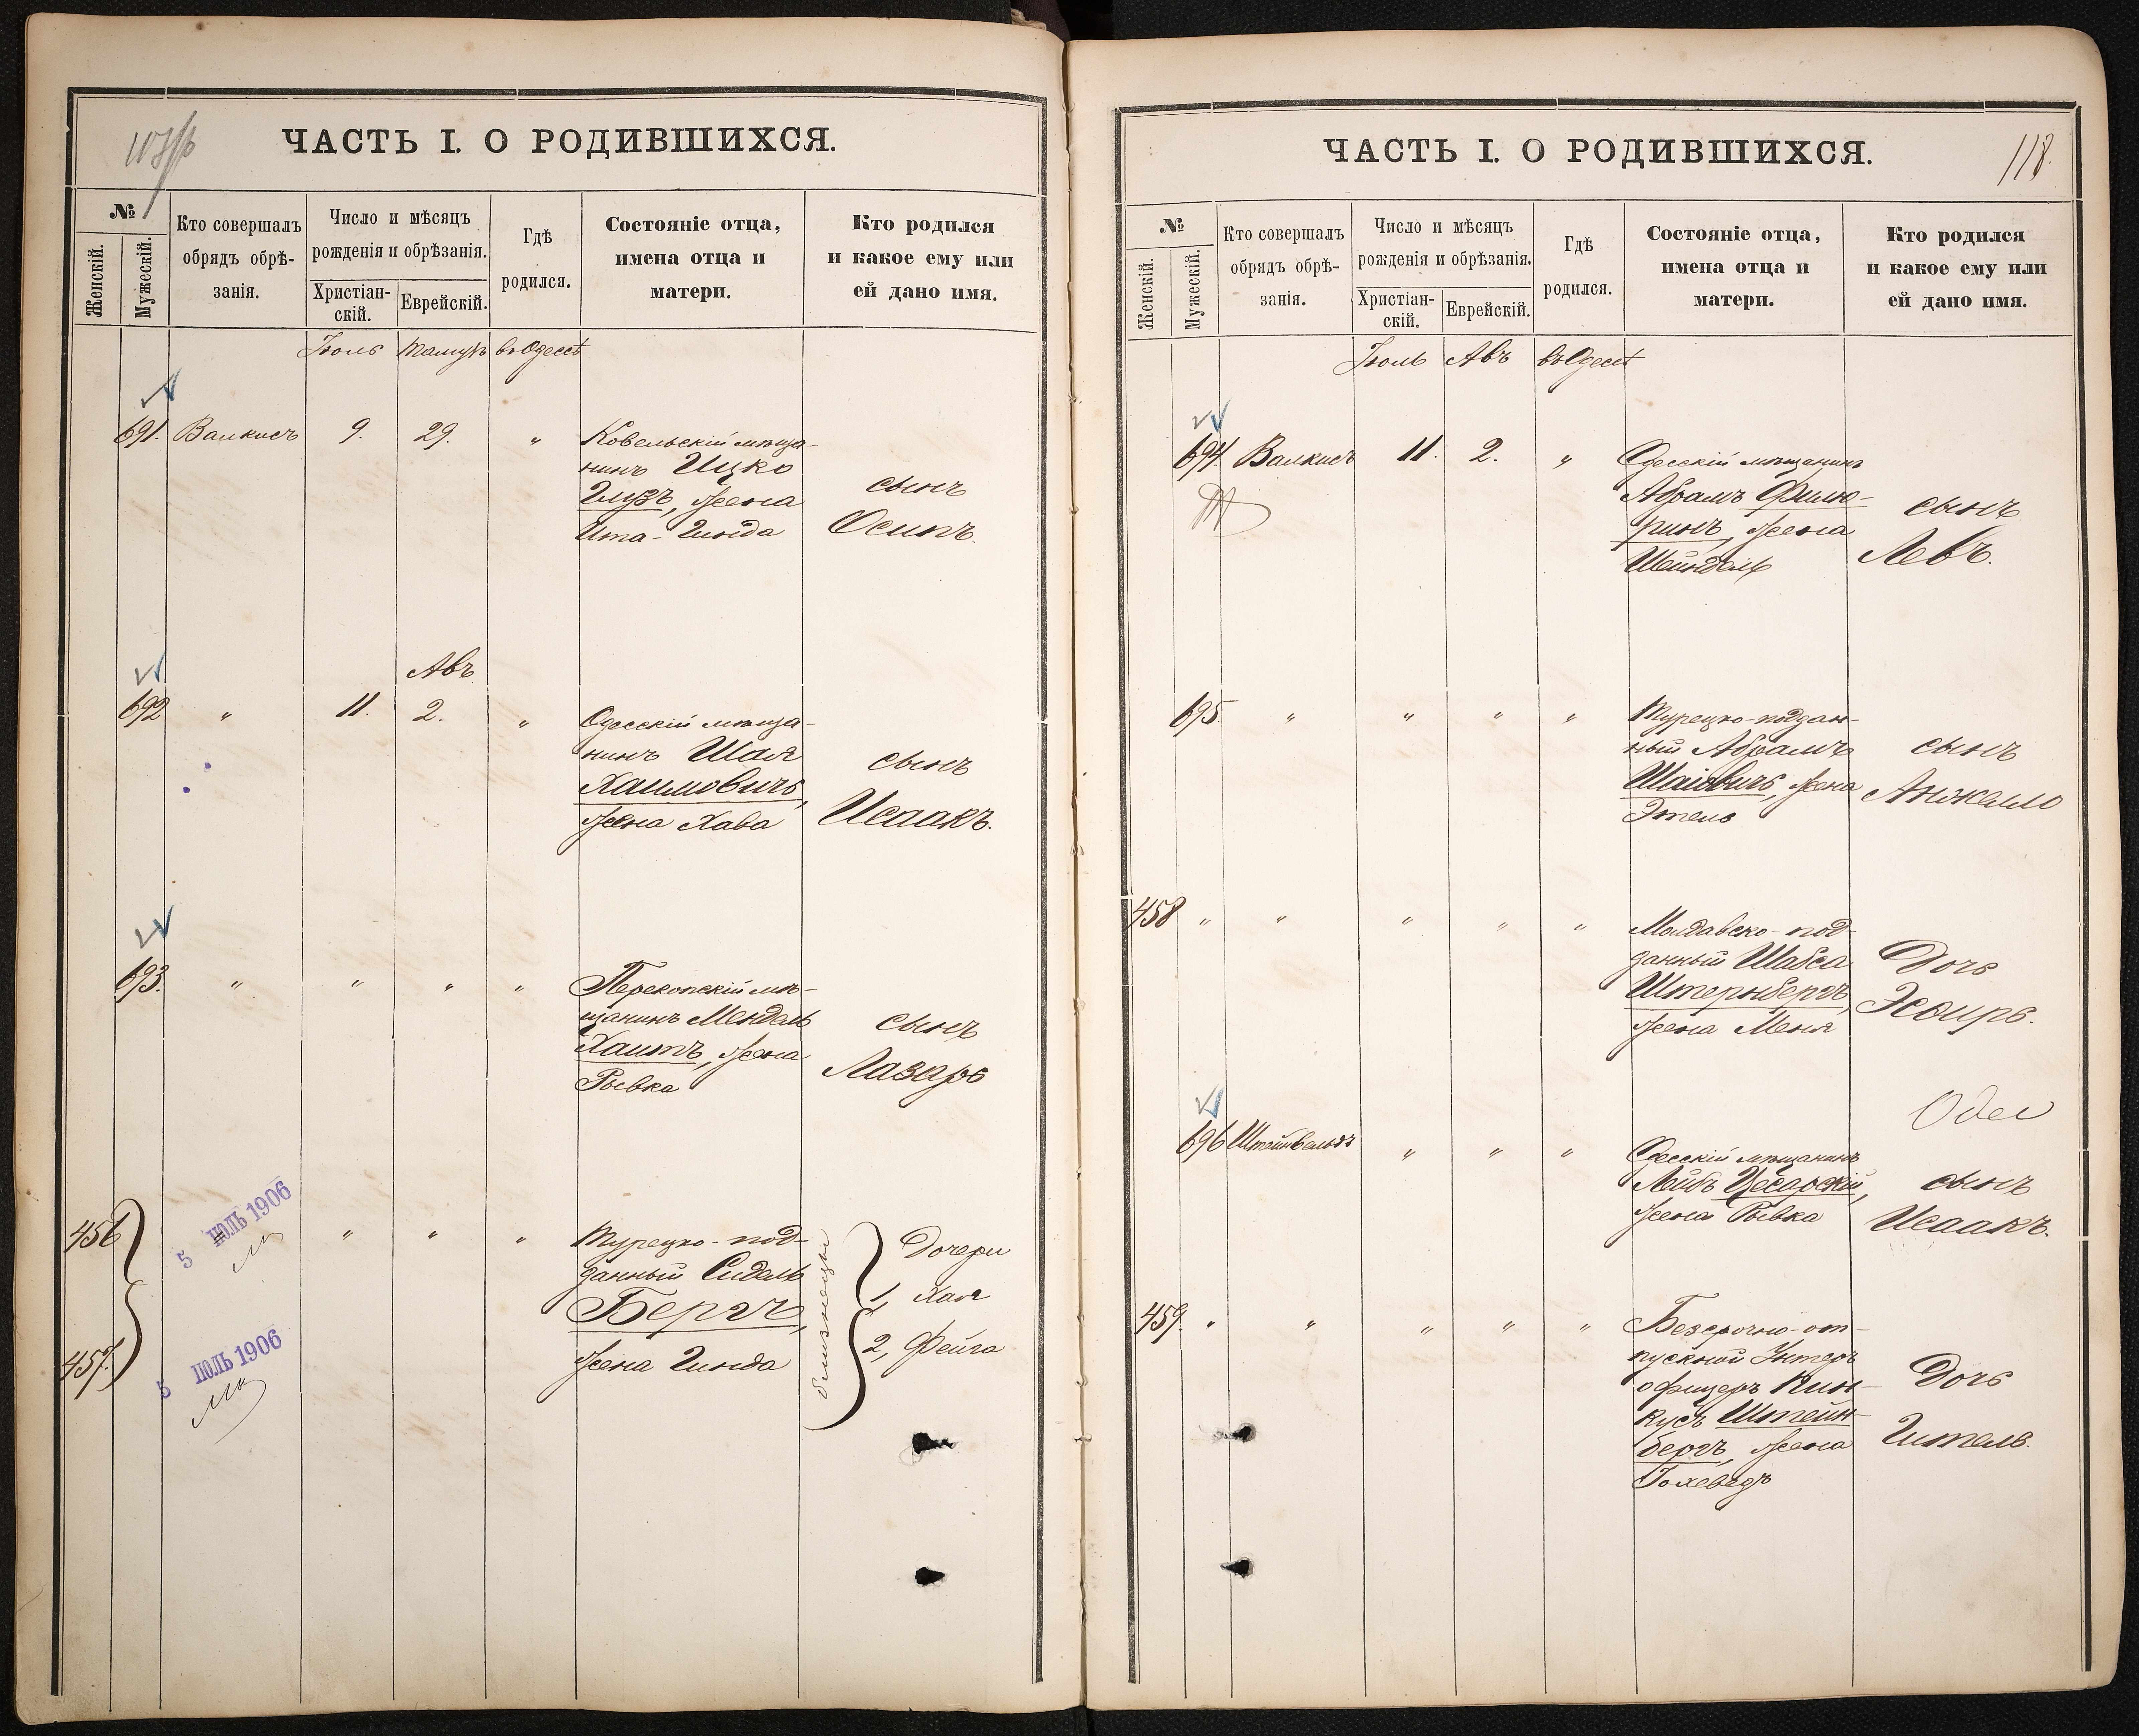 ЧАСТЬ I. О РОДИВШИХСЯ.
№
Женскій.
Мужескій.
Кто совершалъ
обрядъ обрѣ-
занія.
Число и мѣсяцъ
рожденія и обрѣзанія.
Христіан-
скій.
Еврейскій.
Гдѣ
родился.
Состояніе отца,
имена отца и
матери.
Кто родился
и какое ему или
ей дано имя.
Іюль Тамузъ въ Одессѣ
691. Валкисъ 9. 29. " Ковельскій мѣща-
нинъ Ицко
Глузъ, жена
Ита-Гинда
сынъ
Осипъ.
Авъ
692 " 11. 2. " Одесскій мѣща-
нинъ Шая
Хаимовичъ,
жена Хава
сынъ
Исаакъ.
693. " " " " Перекопскій мѣ-
щанинъ Мендель
Хаитъ, жена
Рывка
сынъ
Лазарь
456
457.
5 ІЮЛЬ 1906
5 ІЮЛЬ 1906
" " " Турецко-под-
данный Сидель
Бергъ,
жена Гинда
близнецы
Дочери
1, Хая
2, Фейга
ЧАСТЬ I. О РОДИВШИХСЯ.
118.
№
Женскій.
Мужескій.
Кто совершалъ
обрядъ обрѣ-
занія.
Число и мѣсяцъ
рожденія и обрѣзанія.
Христіан-
скій.
Еврейскій.
Гдѣ
родился.
Состояніе отца,
имена отца и
матери.
Кто родился
и какое ему или
ей дано имя.
Іюль Авъ въ Одессѣ
694. Валкисъ 11. 2. " Одесскій мѣщанинъ
Абрамъ Филю-
ринъ, жена
Шейндель
сынъ
Левъ.
695 " " " " Турецко-поддан-
ный Абрамъ
Шаіовичъ, жена
Этель
сынъ
Анжело
458 " " " " " Молдавско-под-
данный Шабса
Штернбергъ,
жена Меня
Дочь
Эсѳирь.
696 Штейнвальдъ " " " Одесскій мѣщанинъ
Лейбъ Цесарскій,
жена Рывка
сынъ
Исаакъ.
459. " " " " " Безсрочно-от-
пускной Унтеръ
офицеръ Пин-
кусъ Штейн-
бергъ, жена
Іохеведъ
Дочь
Гитель.